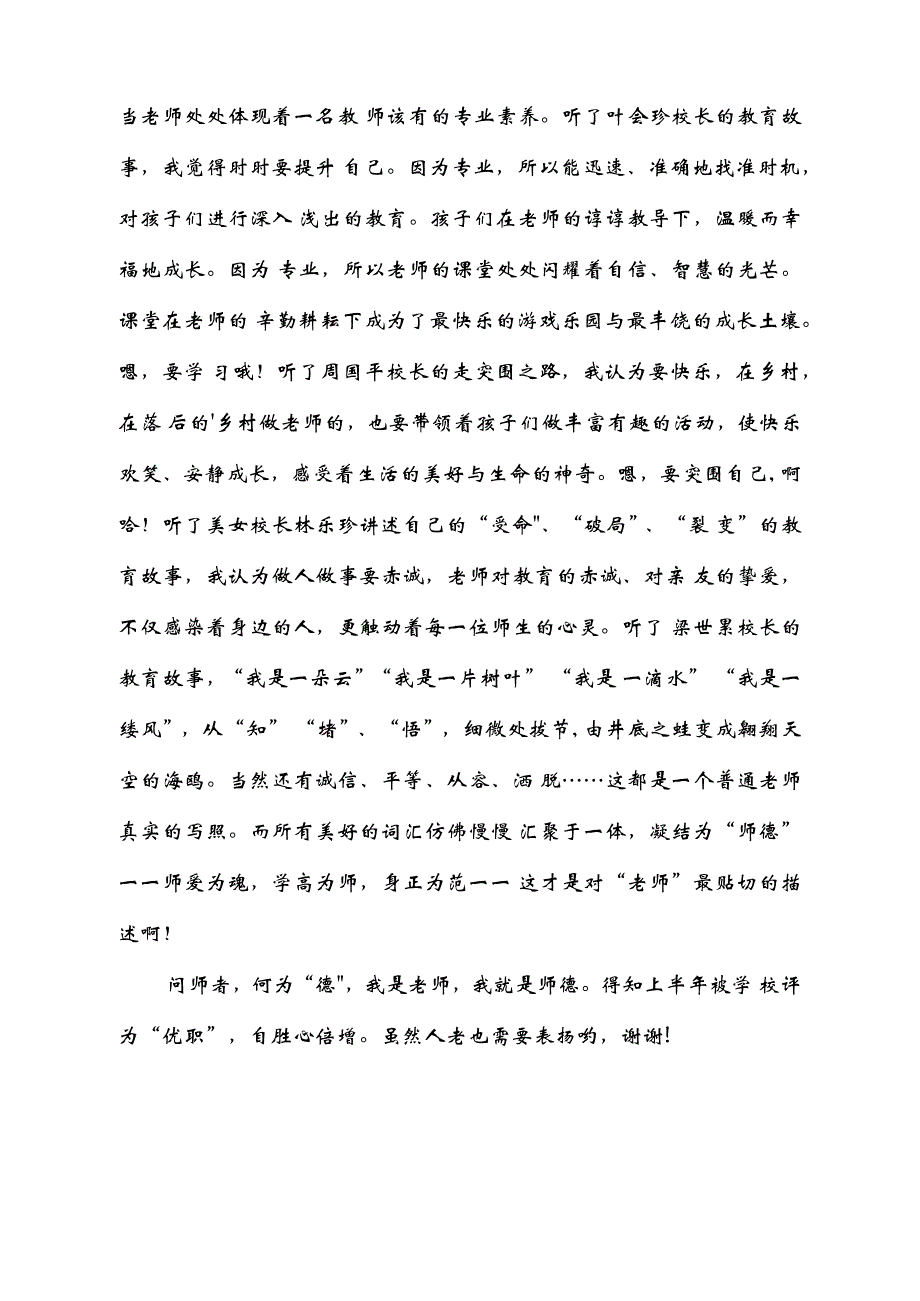 当老师处处体现着一名教 师该有的专业素养。听了叶会珍校长的教育故
事，我觉得时时要提升 自己。因为专业，所以能迅速、准确地找准时机，
对孩子们进行深入 浅出的教育。孩子们在老师的谆谆教导下，温暖而幸
福地成长。因为 专业，所以老师的课堂处处闪耀着自信、智慧的光芒。
课堂在老师的 辛勤耕耘下成为了最快乐的游戏乐园与最丰饶的成长土壤。
嗯，要学 习哦！听了周国平校长的走突围之路，我认为要快乐，在乡村，
在落 后的'乡村做老师的，也要带领着孩子们做丰富有趣的活动，使快乐
欢笑、安静成长，感受着生活的美好与生命的神奇。嗯，要突围自己,啊
哈！听了美女校长林乐珍讲述自己的“受命"、“破局”、“裂 变”的教
育故事，我认为做人做事要赤诚，老师对教育的赤诚、对亲 友的挚爱，
不仅感染着身边的人，更触动着每一位师生的心灵。听了 梁世累校长的
教育故事，“我是一朵云”“我是一片树叶” “我是 一滴水” “我是一
缕风”，从“知” “堵”、“悟”，细微处拔节,由井底之蛙变成翱翔天
空的海鸥。当然还有诚信、平等、从容、洒 脱……这都是一个普通老师
真实的写照。而所有美好的词汇仿佛慢慢 汇聚于一体，凝结为“师德”
一一师爱为魂，学高为师，身正为范一一 这才是对“老师”最贴切的描
述啊！
问师者，何为“德"，我是老师，我就是师德。得知上半年被学 校评
为“优职”，自胜心倍增。虽然人老也需要表扬哟，谢谢!